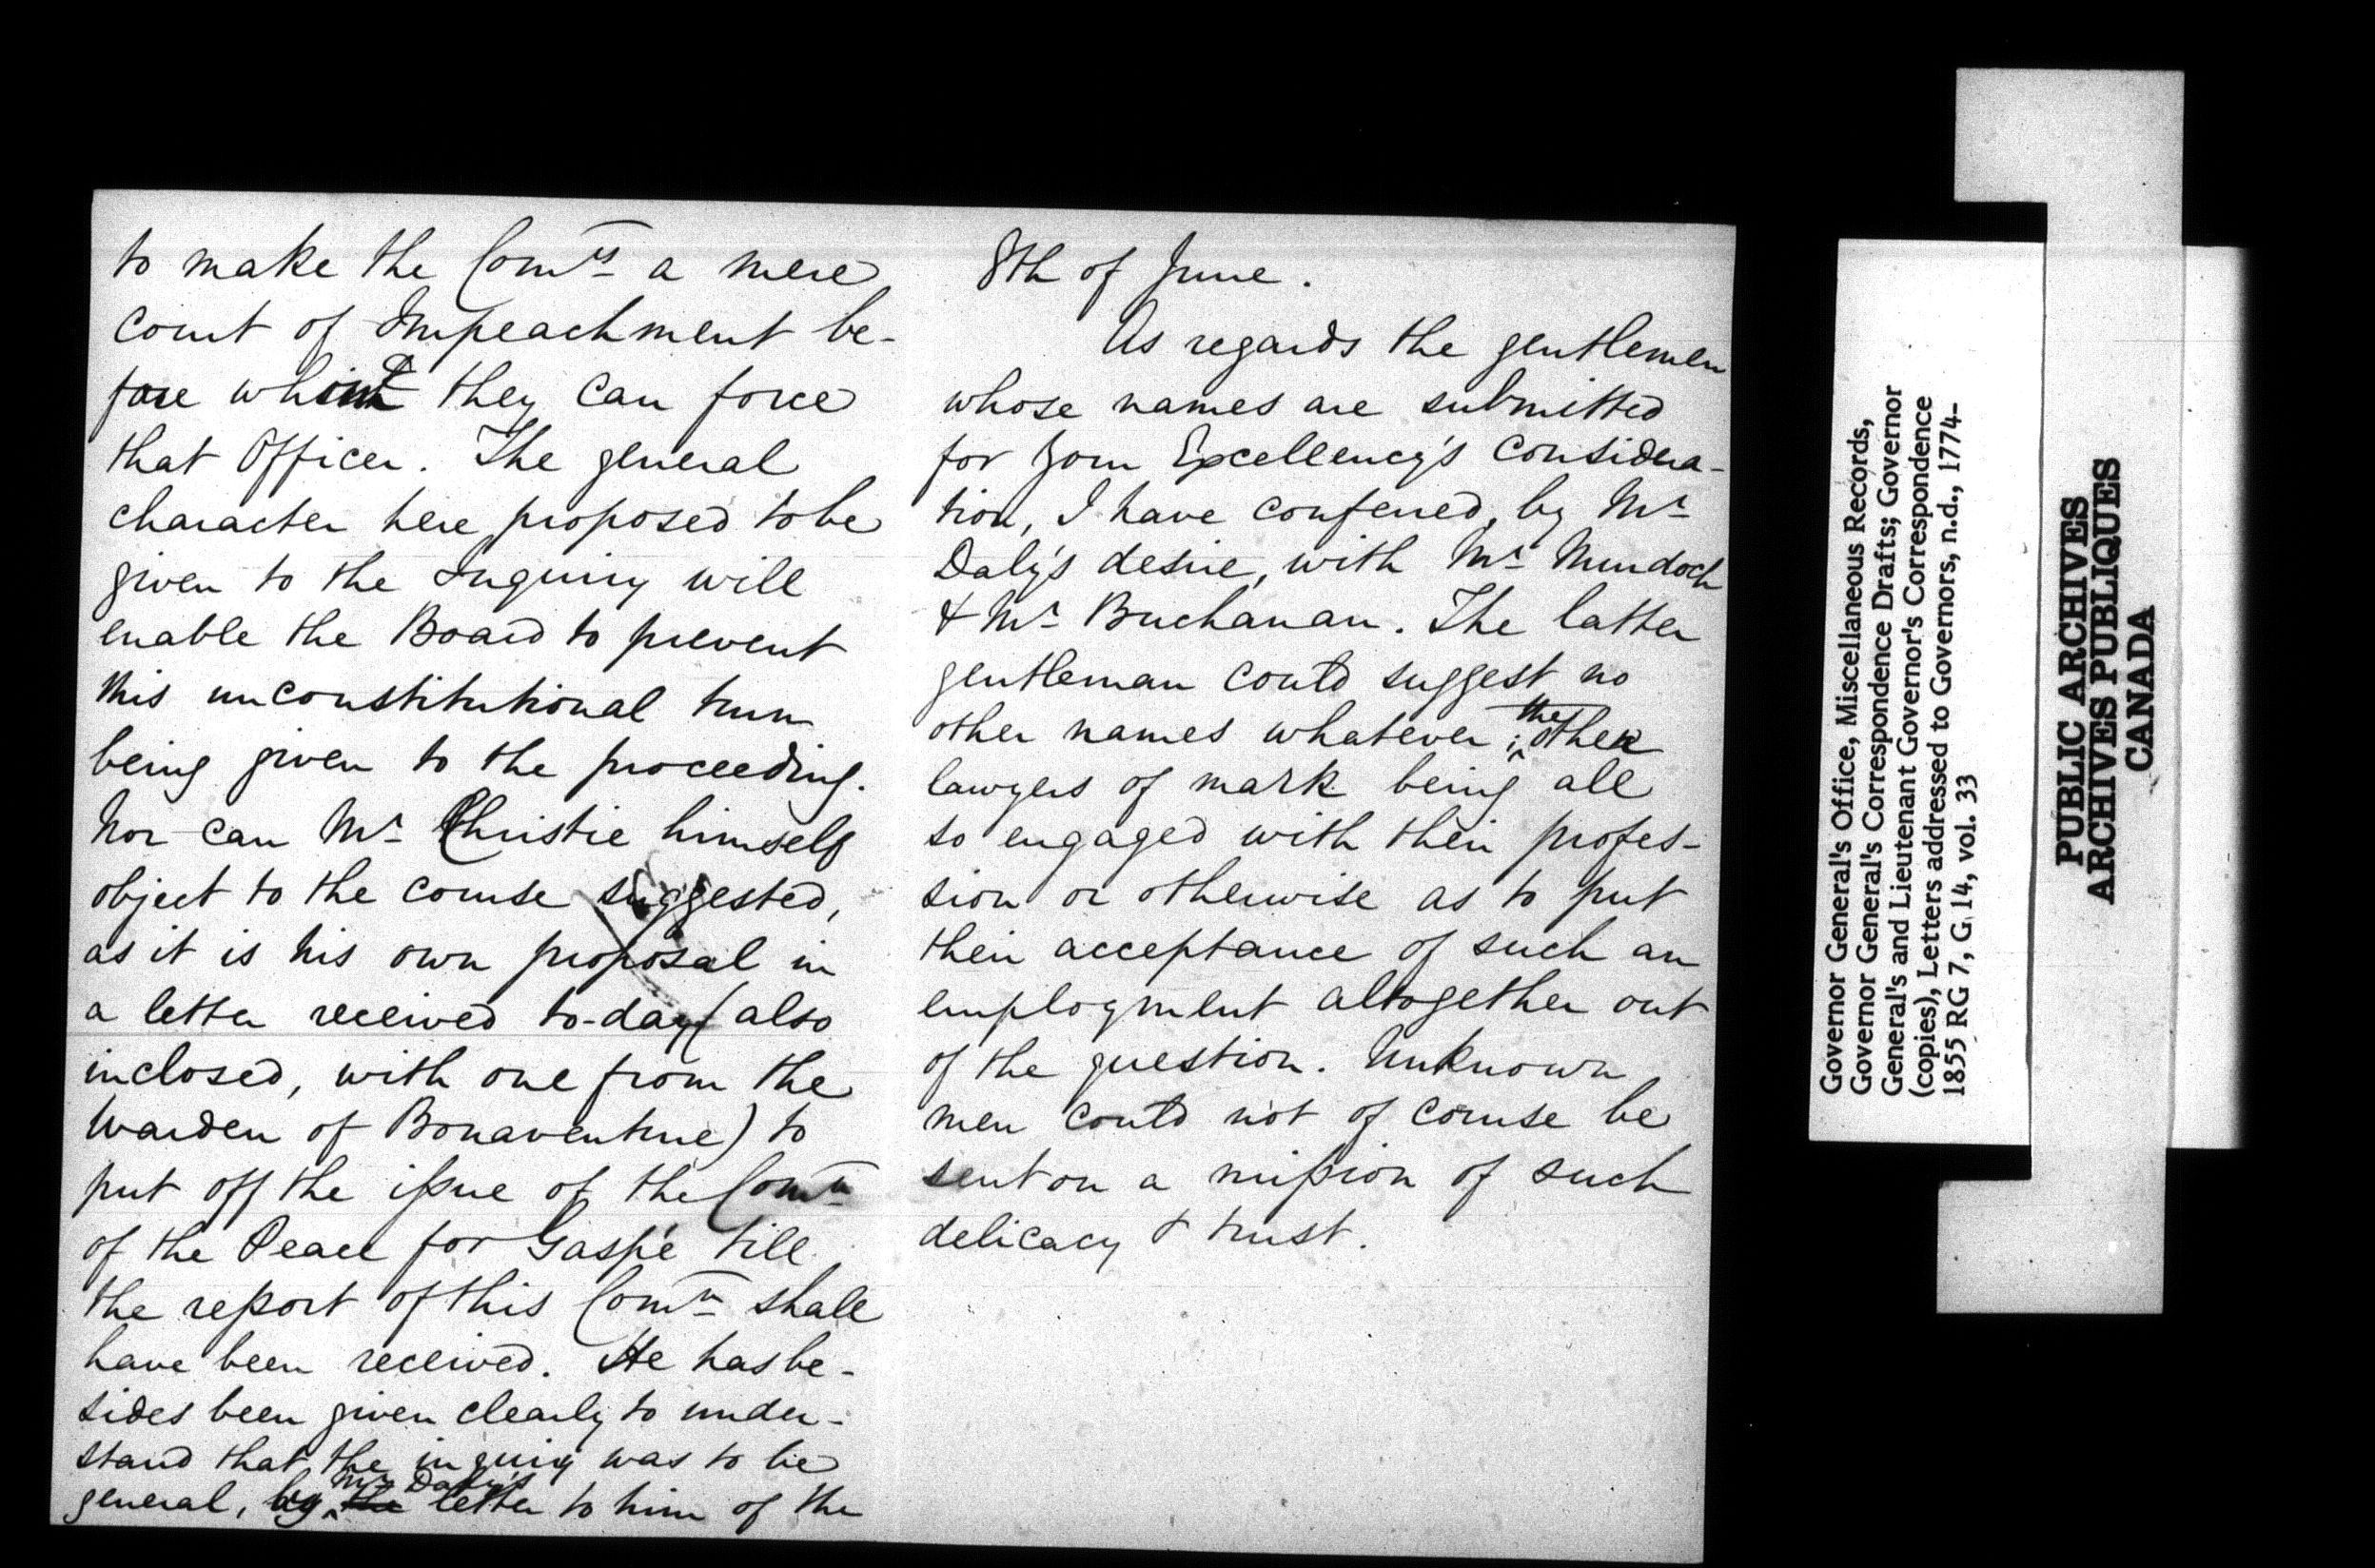 to make the Comrs a mere
court of Impeachment be-
fore which they can force
that Officer. The general
character here proposed to be
given to the Inquiry will
enable the Board to prevent
this unconstitutional turn
being given to the proceeding.
Nor can Mr Christie himself
object to the course suggested,
as it is his own proposal in
a letter received to-day (also
inclosed, with one from the
Warden of Bonaventure) to
put off the issue of the Comn
of the Peace for Gaspé till
the report of this Comn shall
have been received. He has be-
sides been given clearly to under-
stand that the inquiry was to be
general, by the Mr Daly's letter to him of the
8th of June.
As regards the gentlemen
whose names are submitted
for Your Excellency's considera-
tion, I have conferred, by Mr
Daly's desire, with Mr Murdoch
& Mr Buchanan. The latter
gentleman could suggest no
other names whatever; the other
lawyers of mark being all
so engaged with their profes-
sion or otherwise as to put
their acceptance of such an
employment altogether out
of the question. Unknown
men could not of course be
sent on a mission of such
delicacy & trust.
Governor General's Office, Miscellaneous Records,
Governor General's Correspondence Drafts; Governor
General's and Lieutenant Governor's Correspondence
(copies), Letters addressed to Governors, n.d., 1774-
1855 RG 7, G 14, vol. 33
PUBLIC ARCHIVES
ARCHIVES PUBLIQUES
CANADA